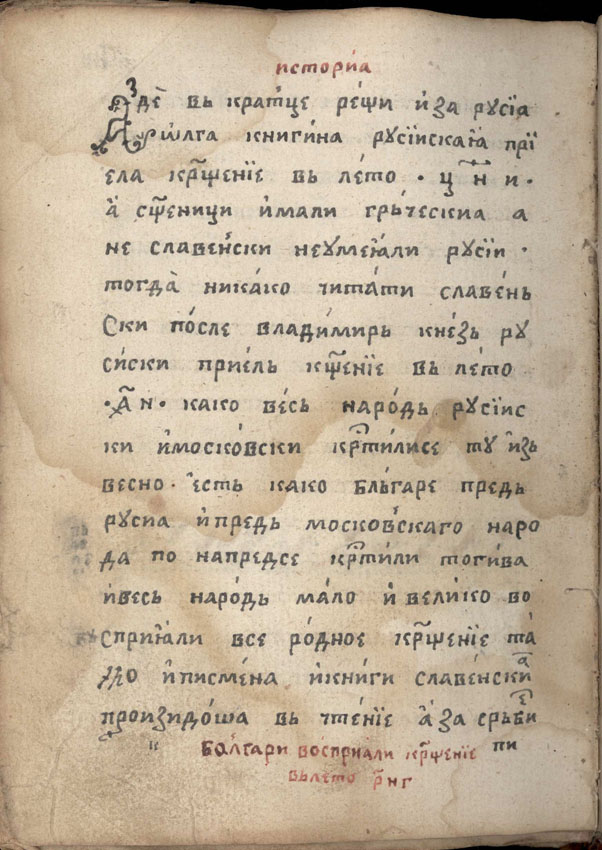 исторїа
Здѐ вь кратце ре́щи и҆ за русїа
ѡ҆лга книги́на русїискаꙗ прї
е́ла кр҃щенїе вь ле́то · ц҃н и ·
а҆ сщ҃еници и҆мали гре́ческиа а
не славе́нски неумеꙗ́ли русїи ·
тогда̀ ника́ко чита́ти славе́нь
ски по́сле влади́мирь кне́зь ру
си́ски прие́ль кр҃щенїе вь ле́то
· а҃н · како ве́сь наро́дь русїис
ки и҆моско́вски кр҃тилисе ту и҆зь
весно · е҆сть како бльгаре предь
русиа и҆предь моско́вскаго наро
да по напредсе кр҃тили тогива
и҆весь наро́дь ма́ло и҆ вели́ко во
сприꙗ́ли все ро́дное кр҃щенїе та́
и҆писме́на и҆книги славе́нски а
произидо́ша вь чте́нїе а҆ за срьби е
пи
болгари восприали кр҃щенїе
вьлето р҃нг